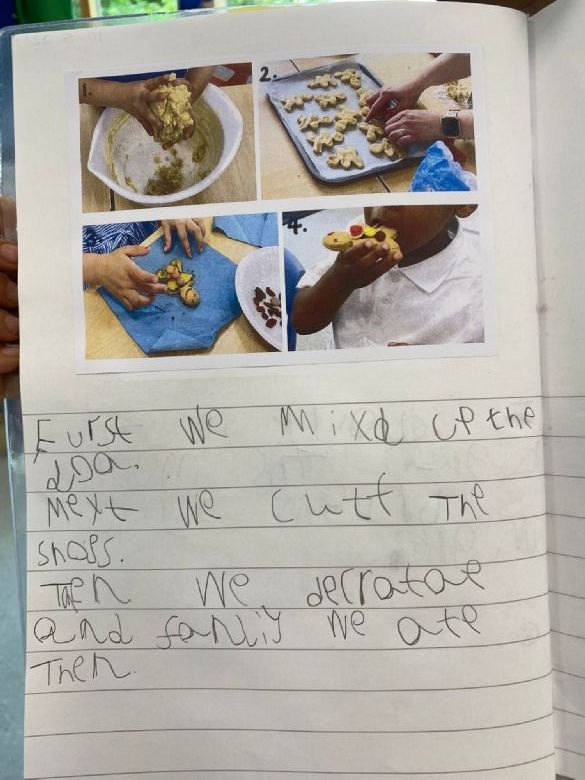 1.
2.
4.
Furst we mixd up the
doa.
Next we cutt the
shaps.
Then we decratae
and fanliy we ate
Then.